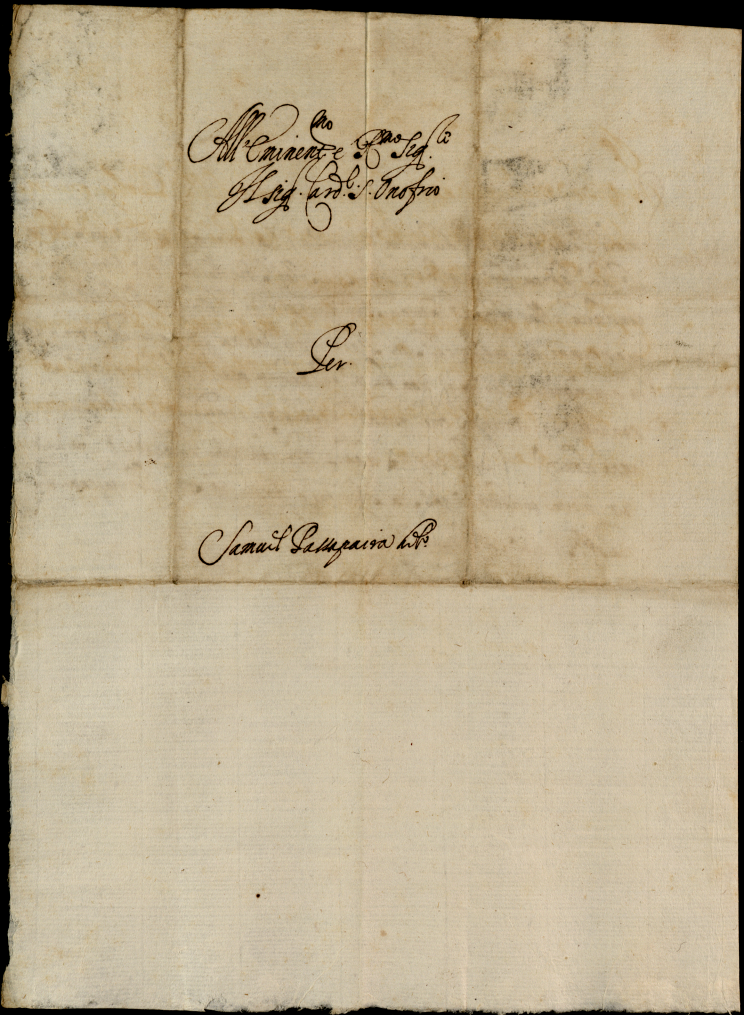 All'Eminent.mo e R.mo Sig.re
Il Sig. Card.l S. Onofrio
Per.
Samuel Passapaira heb.o